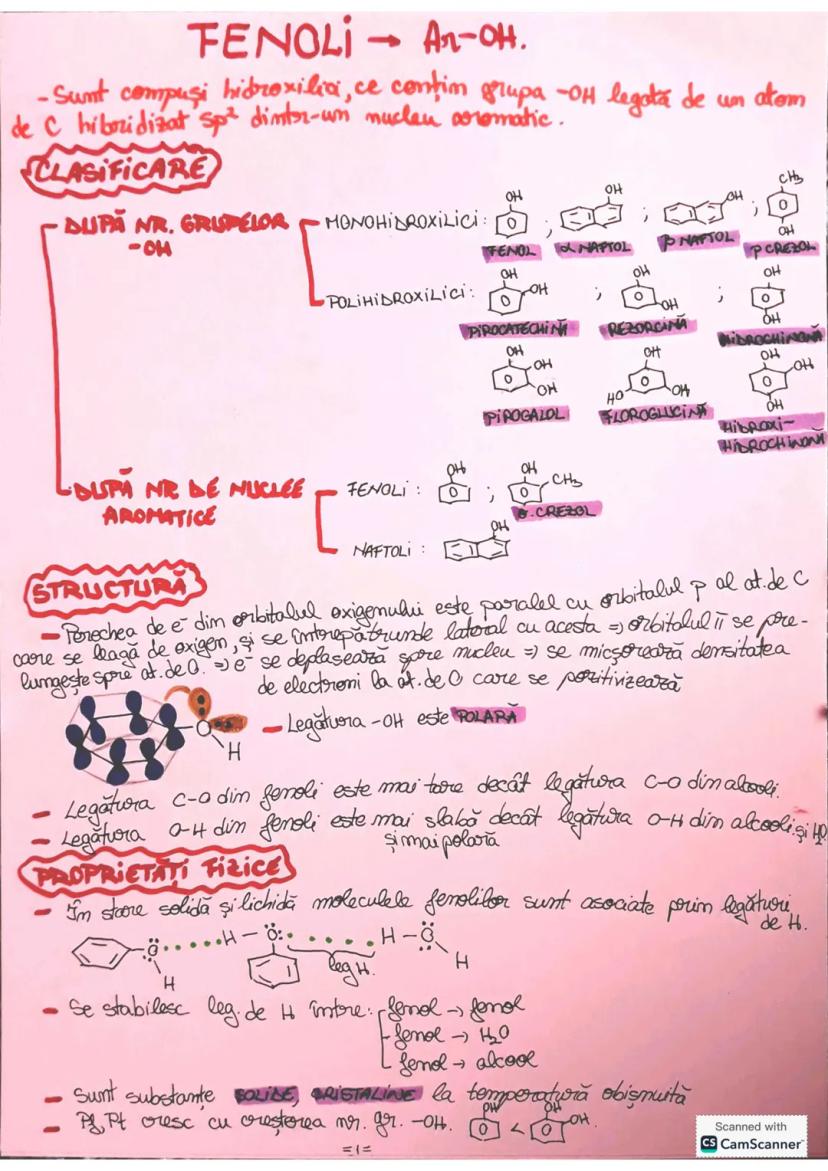 FENOLI → Ar-OH.
- Sunt compuși hidroxilici, ce conțin grupa -OH legată de un atom
de C hibridizat sp² dintr-un nucleu aromatic.
CLASIFICARE
DUPĂ NR. GRUPELOR
-OH
MONOHIDROXILICI: OH ; OH ; OH ; CH₃ OH
FENOL α NAFTOL β NAFTOL p CREZOL
POLIHIDROXILICI: OH OH ; OH OH ; OH OH
PIROCATECHINĂ REZORCINĂ HIDROCHINONĂ
OH OH OH OH HO OH OH OH OH
PIROGALOL FLOROGLUCINĂ HIDROXI-
HIDROCHINONĂ
DUPĂ NR DE NUCLEE
AROMATICE
FENOLI: OH ; OH CH₃
o. CREZOL
NAFTOLI: OH
STRUCTURĂ
- Perechea de e⁻ din orbitalul oxigenului este paralel cu orbitalul p al at. de C
care se leagă de oxigen, și se întrepătrunde lateral cu acesta => orbitalul π se pre-
lungește spre at. de O. => e⁻ se deplasează spre nucleu => se micșorează densitatea
de electroni la at. de O care se pozitivizează
O H
- Legătura -OH este POLARĂ
- Legătura C-O din fenoli este mai tare decât legătura C-O din alcooli.
- Legătura O-H din fenoli este mai slabă decât legătura O-H din alcooli și H₂O
și mai polară
PROPRIETĂȚI FIZICE
- În stare solidă și lichidă moleculele fenolilor sunt asociate prin legături
de H.
O H H - O: H - O H
leg H.
- Se stabilesc leg. de H între: fenol → fenol
fenol → H₂O
fenol → alcool
- Sunt substanțe SOLIDE, CRISTALINE la temperatură obișnuită
- Pf, Pt cresc cu creșterea nr. gr. -OH. OH < OH OH.
=1=
Scanned with
CS CamScanner™